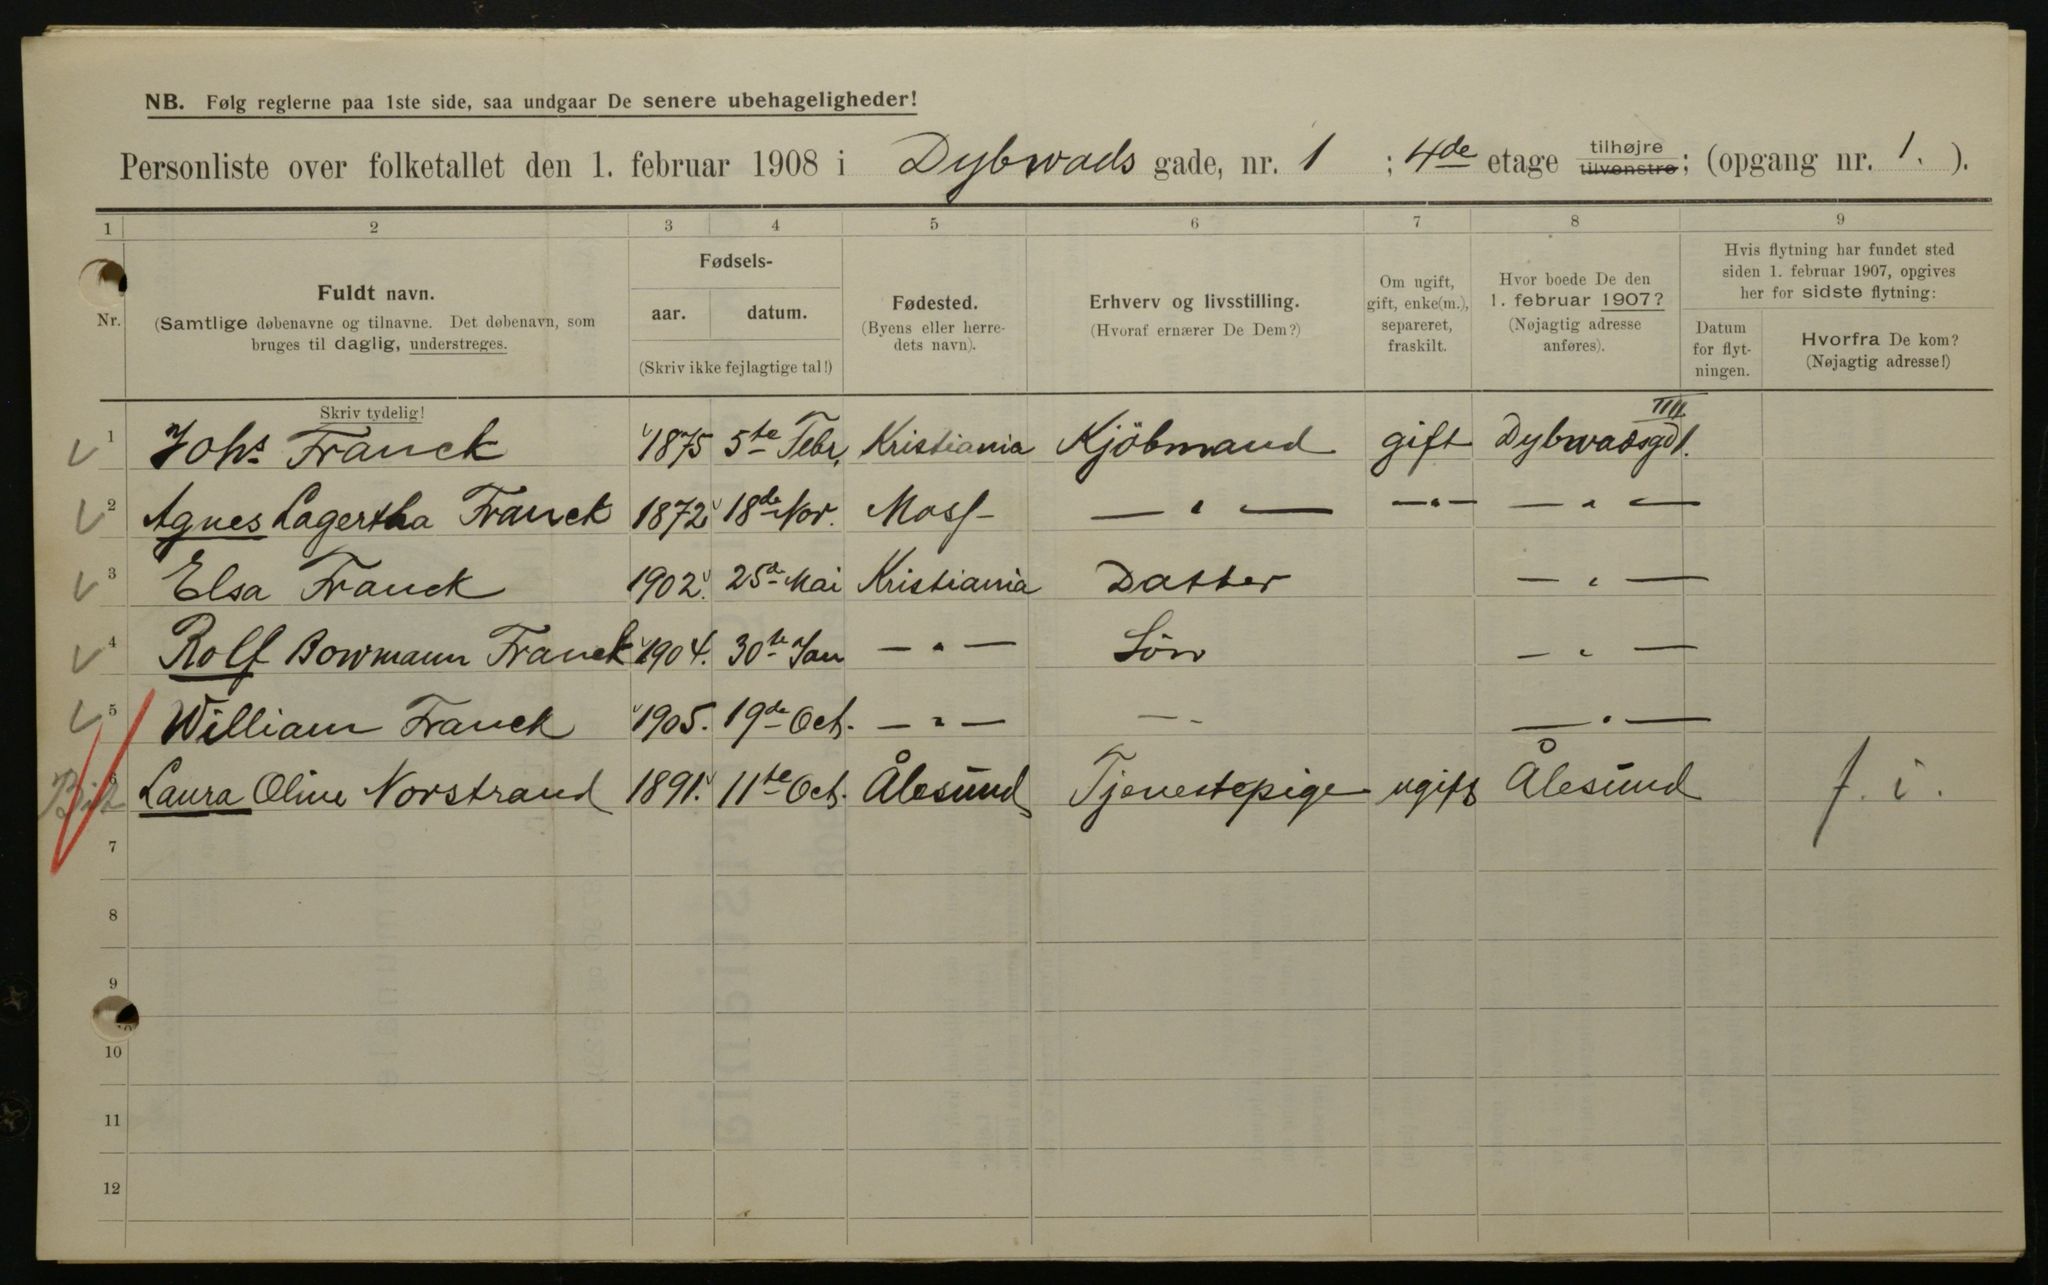 NB. Følg reglerne paa 1ste side, saa undgaar De senere ubehageligheder!
Personliste over folketallet den 1. februar 1908 i Dybwads gade, nr. 1 ; 4de etage tilhøjre tilvenstre; (opgang nr. 1. ).
1 2 3 4 5 6 7 8 9
Nr.
Fuldt navn.
(Samtlige døbenavne og tilnavne. Det døbenavn, som
bruges til daglig, understreges.
Skriv tydelig!
Fødsels-
aar. datum.
(Skriv ikke fejlagtige tal!)
Fødested.
(Byens eller herre-
dets navn).
Erhverv og livsstilling.
(Hvoraf ernærer De Dem?)
Om ugift,
gift, enke(m.),
separeret,
fraskilt.
Hvor boede De den
1. februar 1907?
(Nøjagtig adresse
anføres).
Hvis flytning har fundet sted
siden 1. februar 1907, opgives
her for sidste flytning:
Datum
for flyt-
ningen.
Hvorfra De kom?
(Nøjagtig adresse!)
1 Johs Franck 1875 5te Febr. Kristiania Kjöbmand gift Dybwadsgd 1. IIII
2 Agnes Lagertha Franck 1872 18de Nov. Moss — " — — " — — " —
3 Elsa Franck 1902. 25de Mai Kristiania Datter — " —
4 Rolf Bowmann Franck 1904. 30te Jan — " — Sön — " —
5 William Franck 1905. 19de Oct. — " — — - — " —
6 Laura Oline Norstrand 1891. 11te Oct. Ålesund Tjenestepige ugift Ålesund f. i.
7
8
9
10
11
12